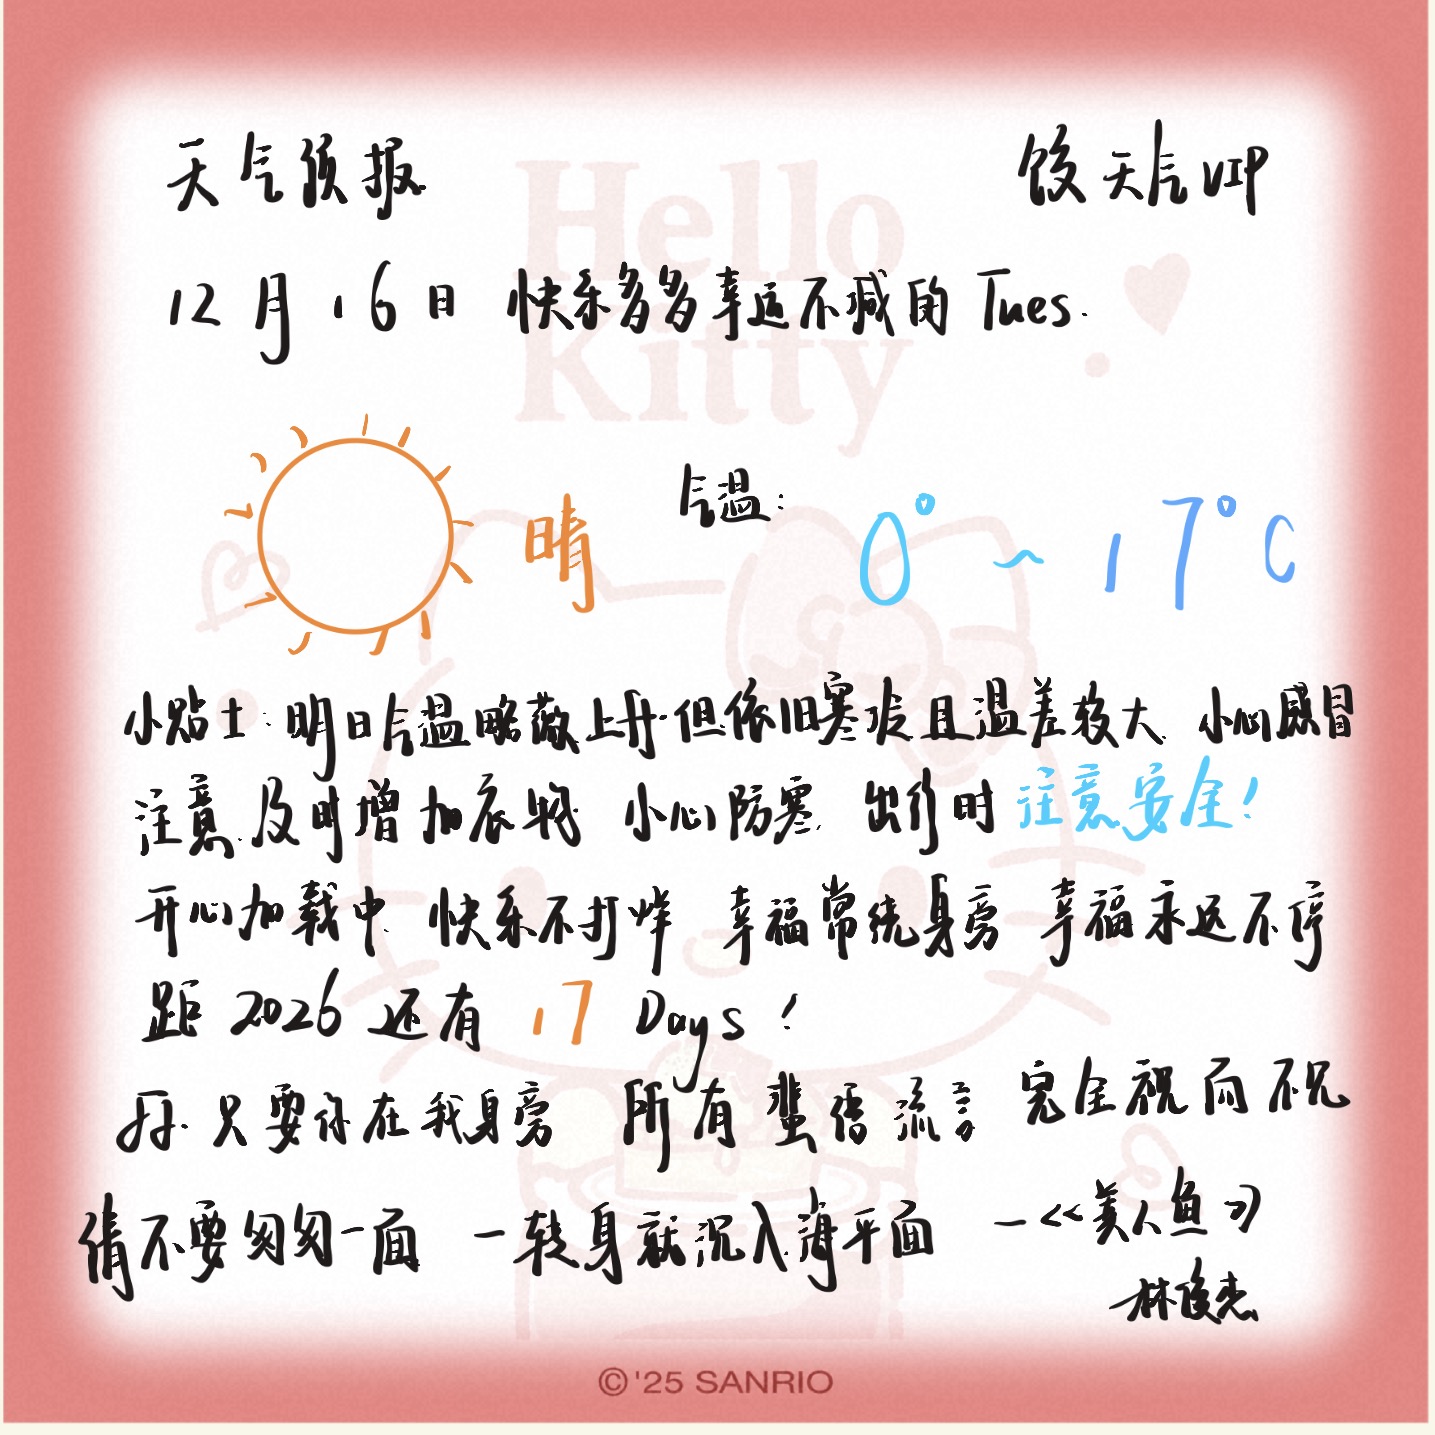 天气预报
馁天气VIP
Hello Kitty
12月16日 快乐多多幸运不减的 Tues.
晴 气温: 0° ~ 17°C
小贴士:明日气温略微上升.但依旧寒冷且温差较大 小心感冒
注意及时增加衣哦 小心防寒 出行时注意安全!
开心加载中 快乐不打烊 幸福常绕身旁 幸福永远不停
距 2026 还有 17 Days !
只要你在我身旁 所有蜚语流言 完全视而不见
请不要匆匆一面 一转身就沉入海平面 —《美人鱼》
林俊杰
© '25 SANRIO